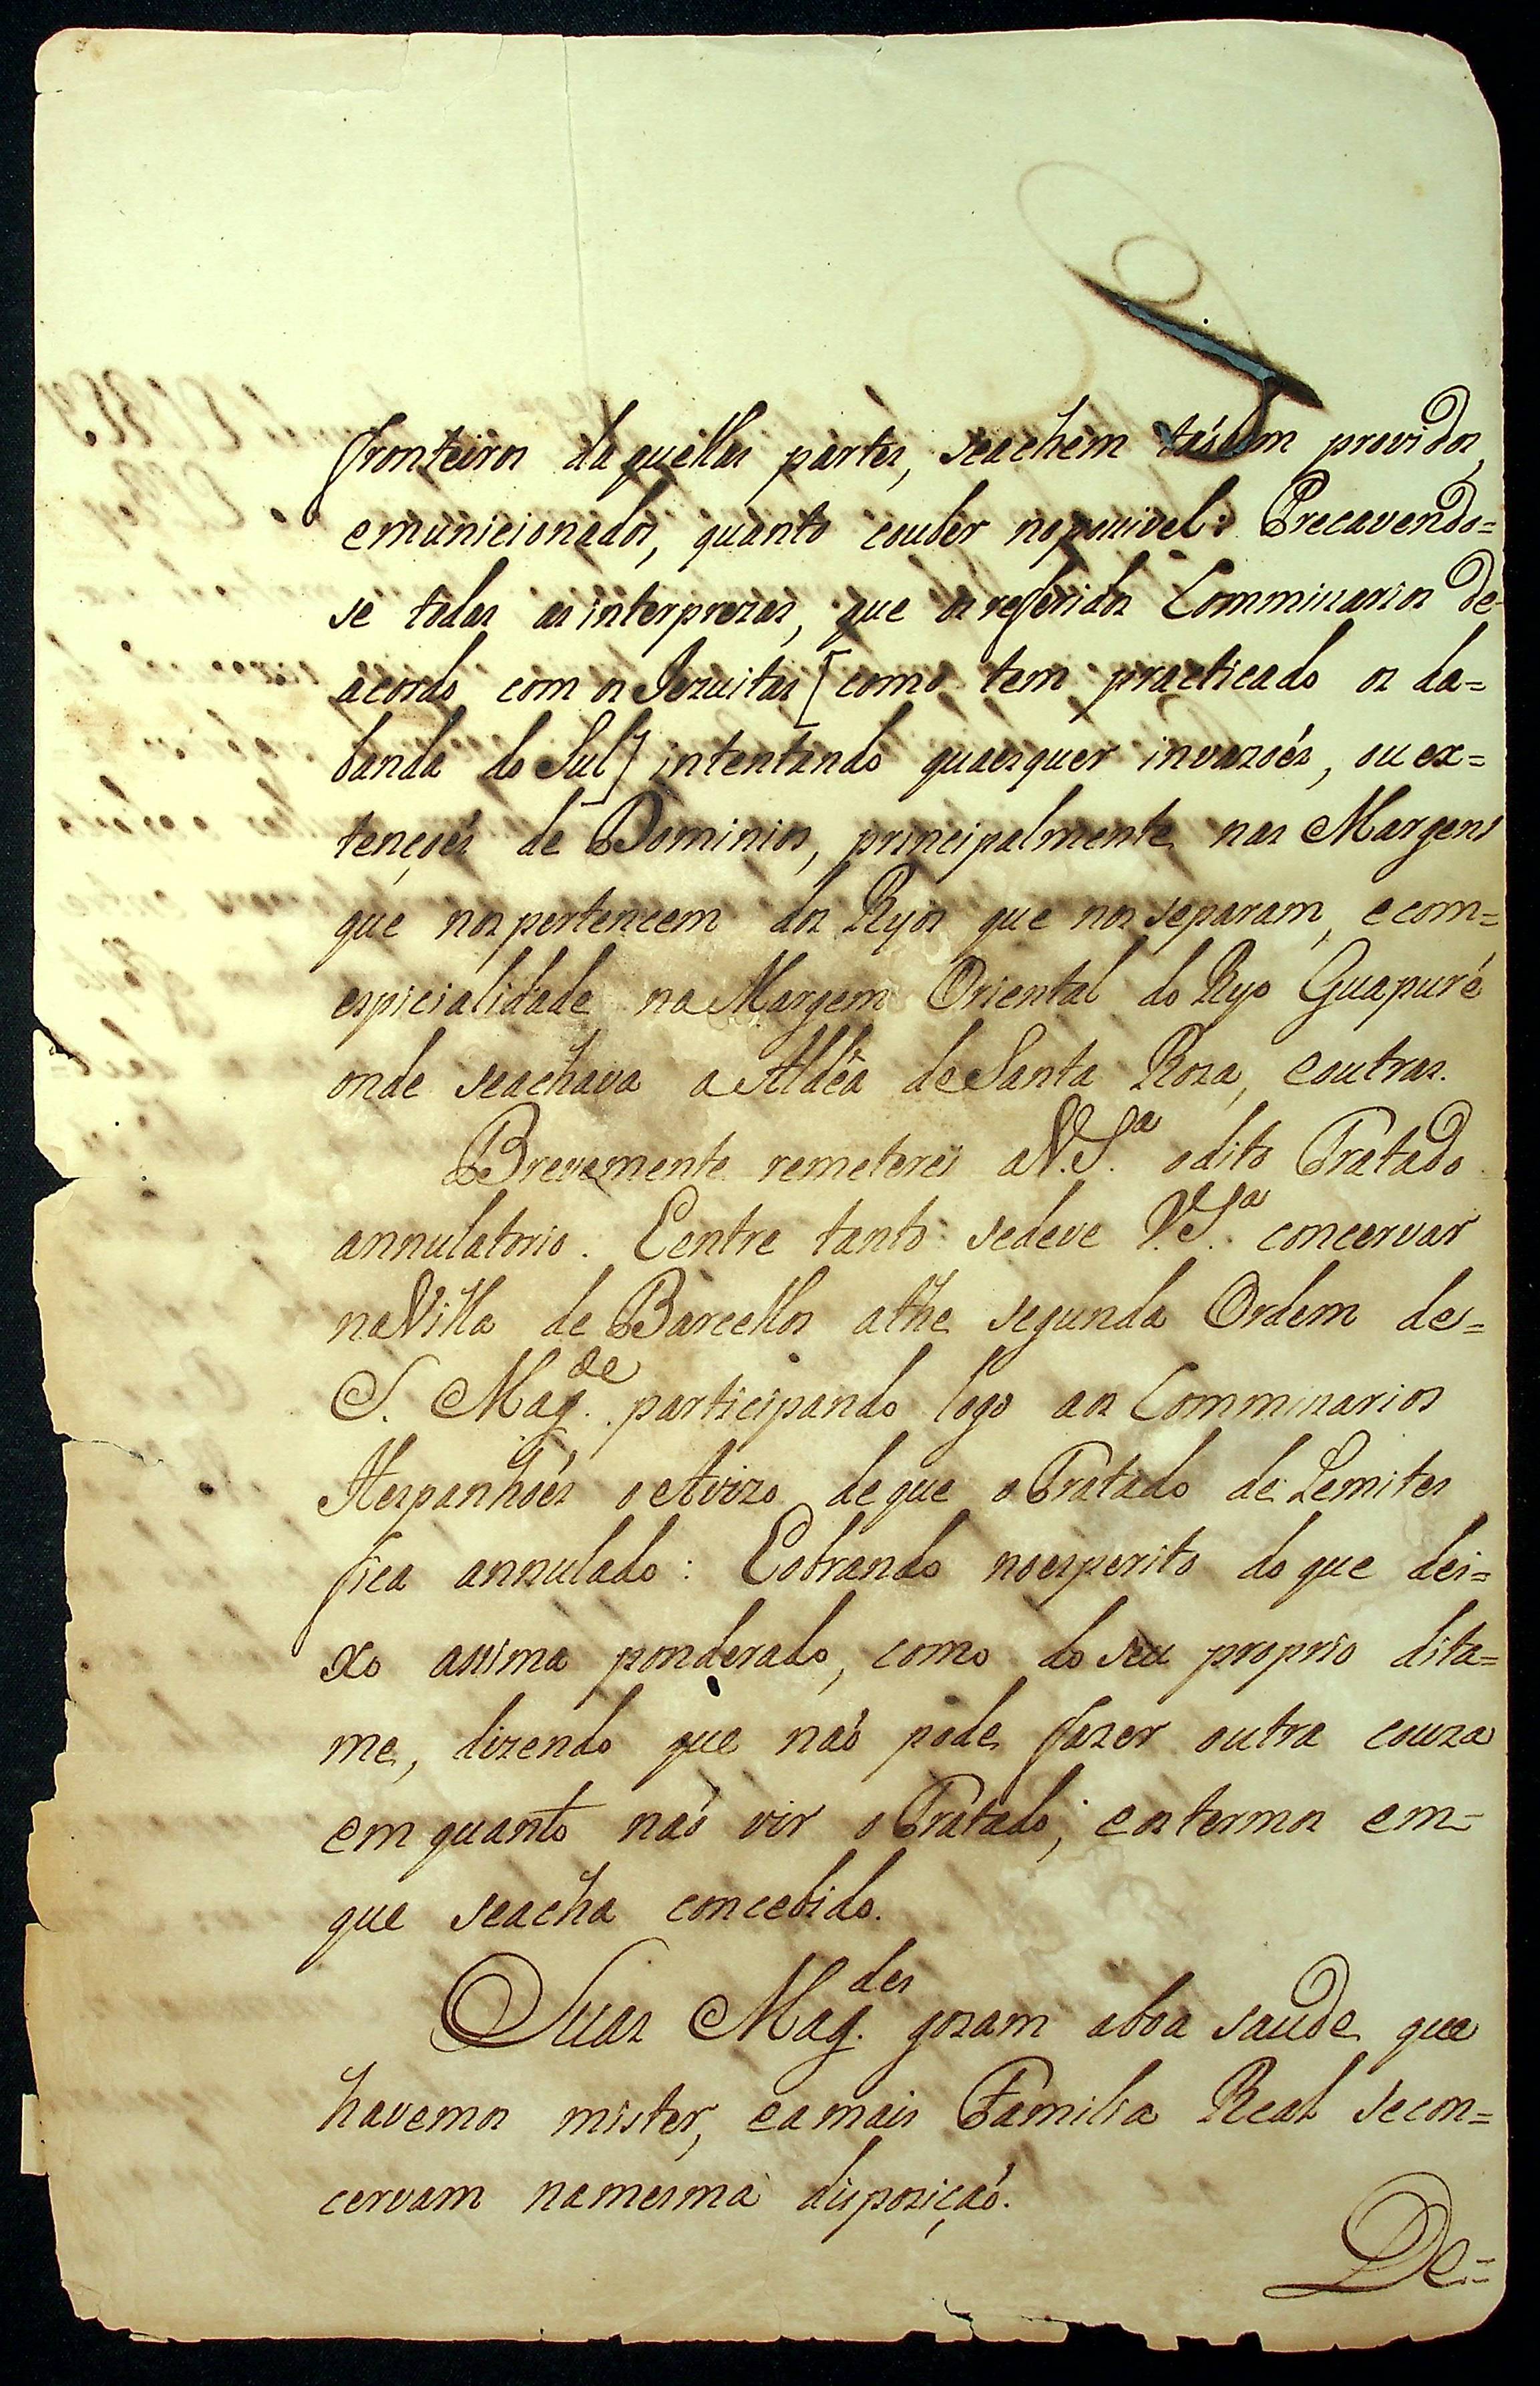 fronteiros daquellas partes, seachem taõ bem providos,
emunicionados, quanto couber nopossivel: Precavendo=
se todas as interprezas, que os referidos Commissarios de-
acordo com os Jezuitas [como tem practicado os da=
banda do Sul] intentando quaesquer invazoés, ou ex=
tençoés de Dominios, principalmente nas Margens
que nos pertencem dos Ryos que nos separam, ecom=
espicialidade na Margem Oriental do Ryo Guaporé
onde seachava a Aldêa de Santa Roza, eoutras.
Brevemente remeterei a V. S.ª odito Tratado
annulatorio. Eentre tanto sedeve V. S.ª concervar
naVilla de Barcellos athe segunda Ordem de=
S. Mag.de participando logo aos Commissarios
Hespanhoés o Avizo deque o Tratado de Lemites
fica annulado: Eobrando noesperito do que dei=
xo assima ponderado, como do seu proprio dita=
me, dizendo que naó pode fazer outra couza
em quanto naó vir o Tratado; eos termos em=
que seacha concebido.
Suas Mag.des gozam aboa saude que
havemos mister, eamais Familia Real secon=
cervam namesma dispoziçaó.
De=